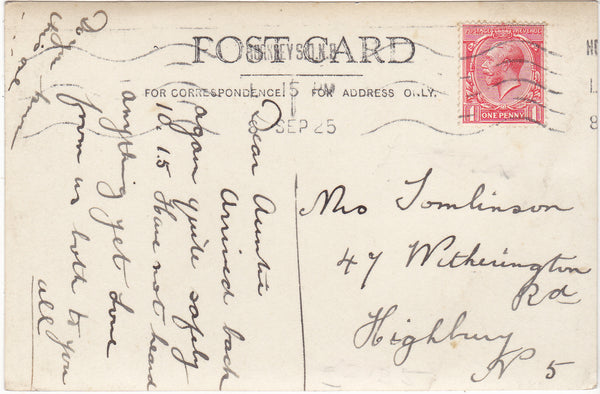 POST CARD
FOR CORRESPONDENCE
FOR ADDRESS ONLY.
15
SEP 25
POSTAGE REVENUE
ONE PENNY
1
1
Dear Auntie
Arrived back
again quite safely
10.15 Have not heard
anything yet Love
from us both to you
all
Mrs Tomlinson
47 Witherington
Rd
Highbury
N 5